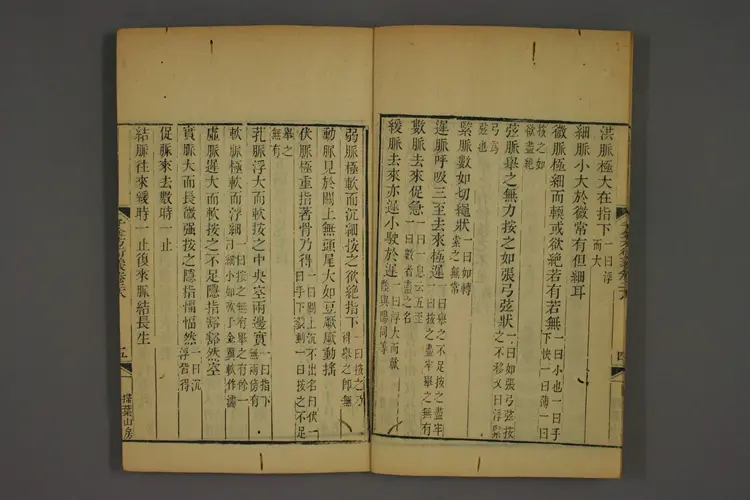 洪脈極大在指下一曰浮而大
細脈小大於微常有但細耳
微脈極細而軟或欲絕若有若無一曰小也一曰手下快一曰薄一曰按之如欲盡
弦脈舉之無力按之如張弓弦狀一曰如張弓弦按之不移又曰浮緊弓為弦也
緊脈數如切繩狀一曰如轉索之無常
遲脈呼吸三至去來極遲一曰舉之不足按之盡牢一曰按之盡牢舉之無有
數脈去來促急一曰一息六七至一曰數者進之名
緩脈去來亦遲小駛於遲一曰浮大而軟陰與陽同等
弱脈極軟而沉細按之欲絕指下一曰按之乃得舉之即無
動脈見於關上無頭尾大如豆厥厥動搖
伏脈極重指著骨乃得一曰關上沉不出名曰伏一曰手下裂動一曰按之不足舉之無有
芤脈浮大而軟按之中央空兩邊實一曰指下無兩旁有
軟脈極軟而浮細一曰按之無有舉之有餘一曰細小如
虛脈遲大而軟按之不足隱指豁豁然空
實脈大而長微强按之隱指愊愊然一曰沉浮皆得
促脈來去數時一止
結脈往來緩時一止復來脈結長生
四
五
掃葉山房